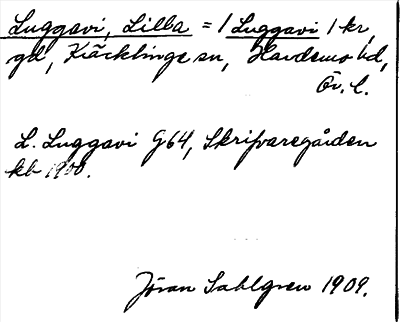 Luggavi, Lilla = 1 Luggavi 1 kr
gd, Kräcklinge sn, Hardemo hd,
Ör. l.
L. Luggavi G64, Skrifvaregården
kb 1900.
Jöran Sahlgren 1909.